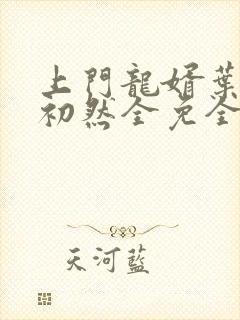 上門龍婿葉
初然全免全
天河藍